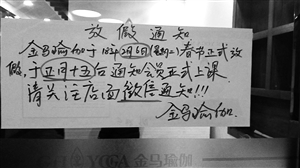 放假通知
金马瑜伽于18年2月6日(星期二)春节正式放
假,于正月十五后通知会员正式上课
请关注店面微信通知!!!
金马瑜伽.
YOGA 金马瑜伽